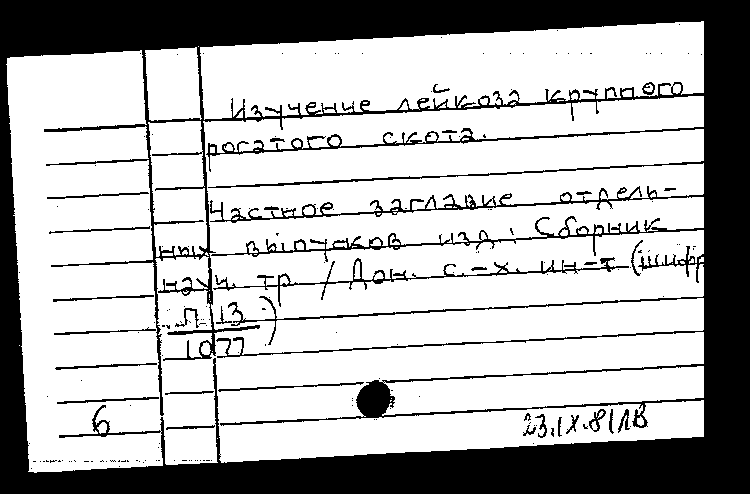 Изучение лейкоза крупного
рогатого скота.
Частное заглавие отдель-
ных выпусков изд.: Сборник
науч. тр. / Дон. с.-х. ин-т (шифр
Л 13
1077 )
6
23.IX.81 ЛВ